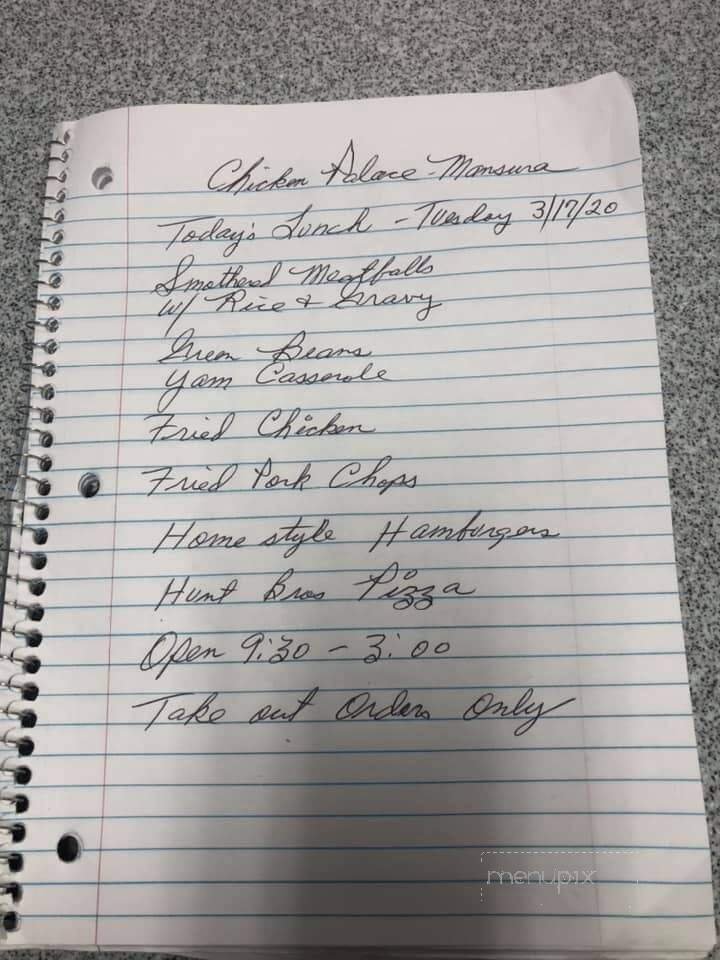 Chicken Palace - Mansura
Today's Lunch - Tuesday 3/17/20
Smothered Meatballs
w/ Rice & Gravy
Green Beans
Yam Casserole
Fried Chicken
Fried Pork Chops
Home style Hamburgers
Hunt Bros Pizza
Open 9:30 - 3:00
Take out Orders Only
menupix